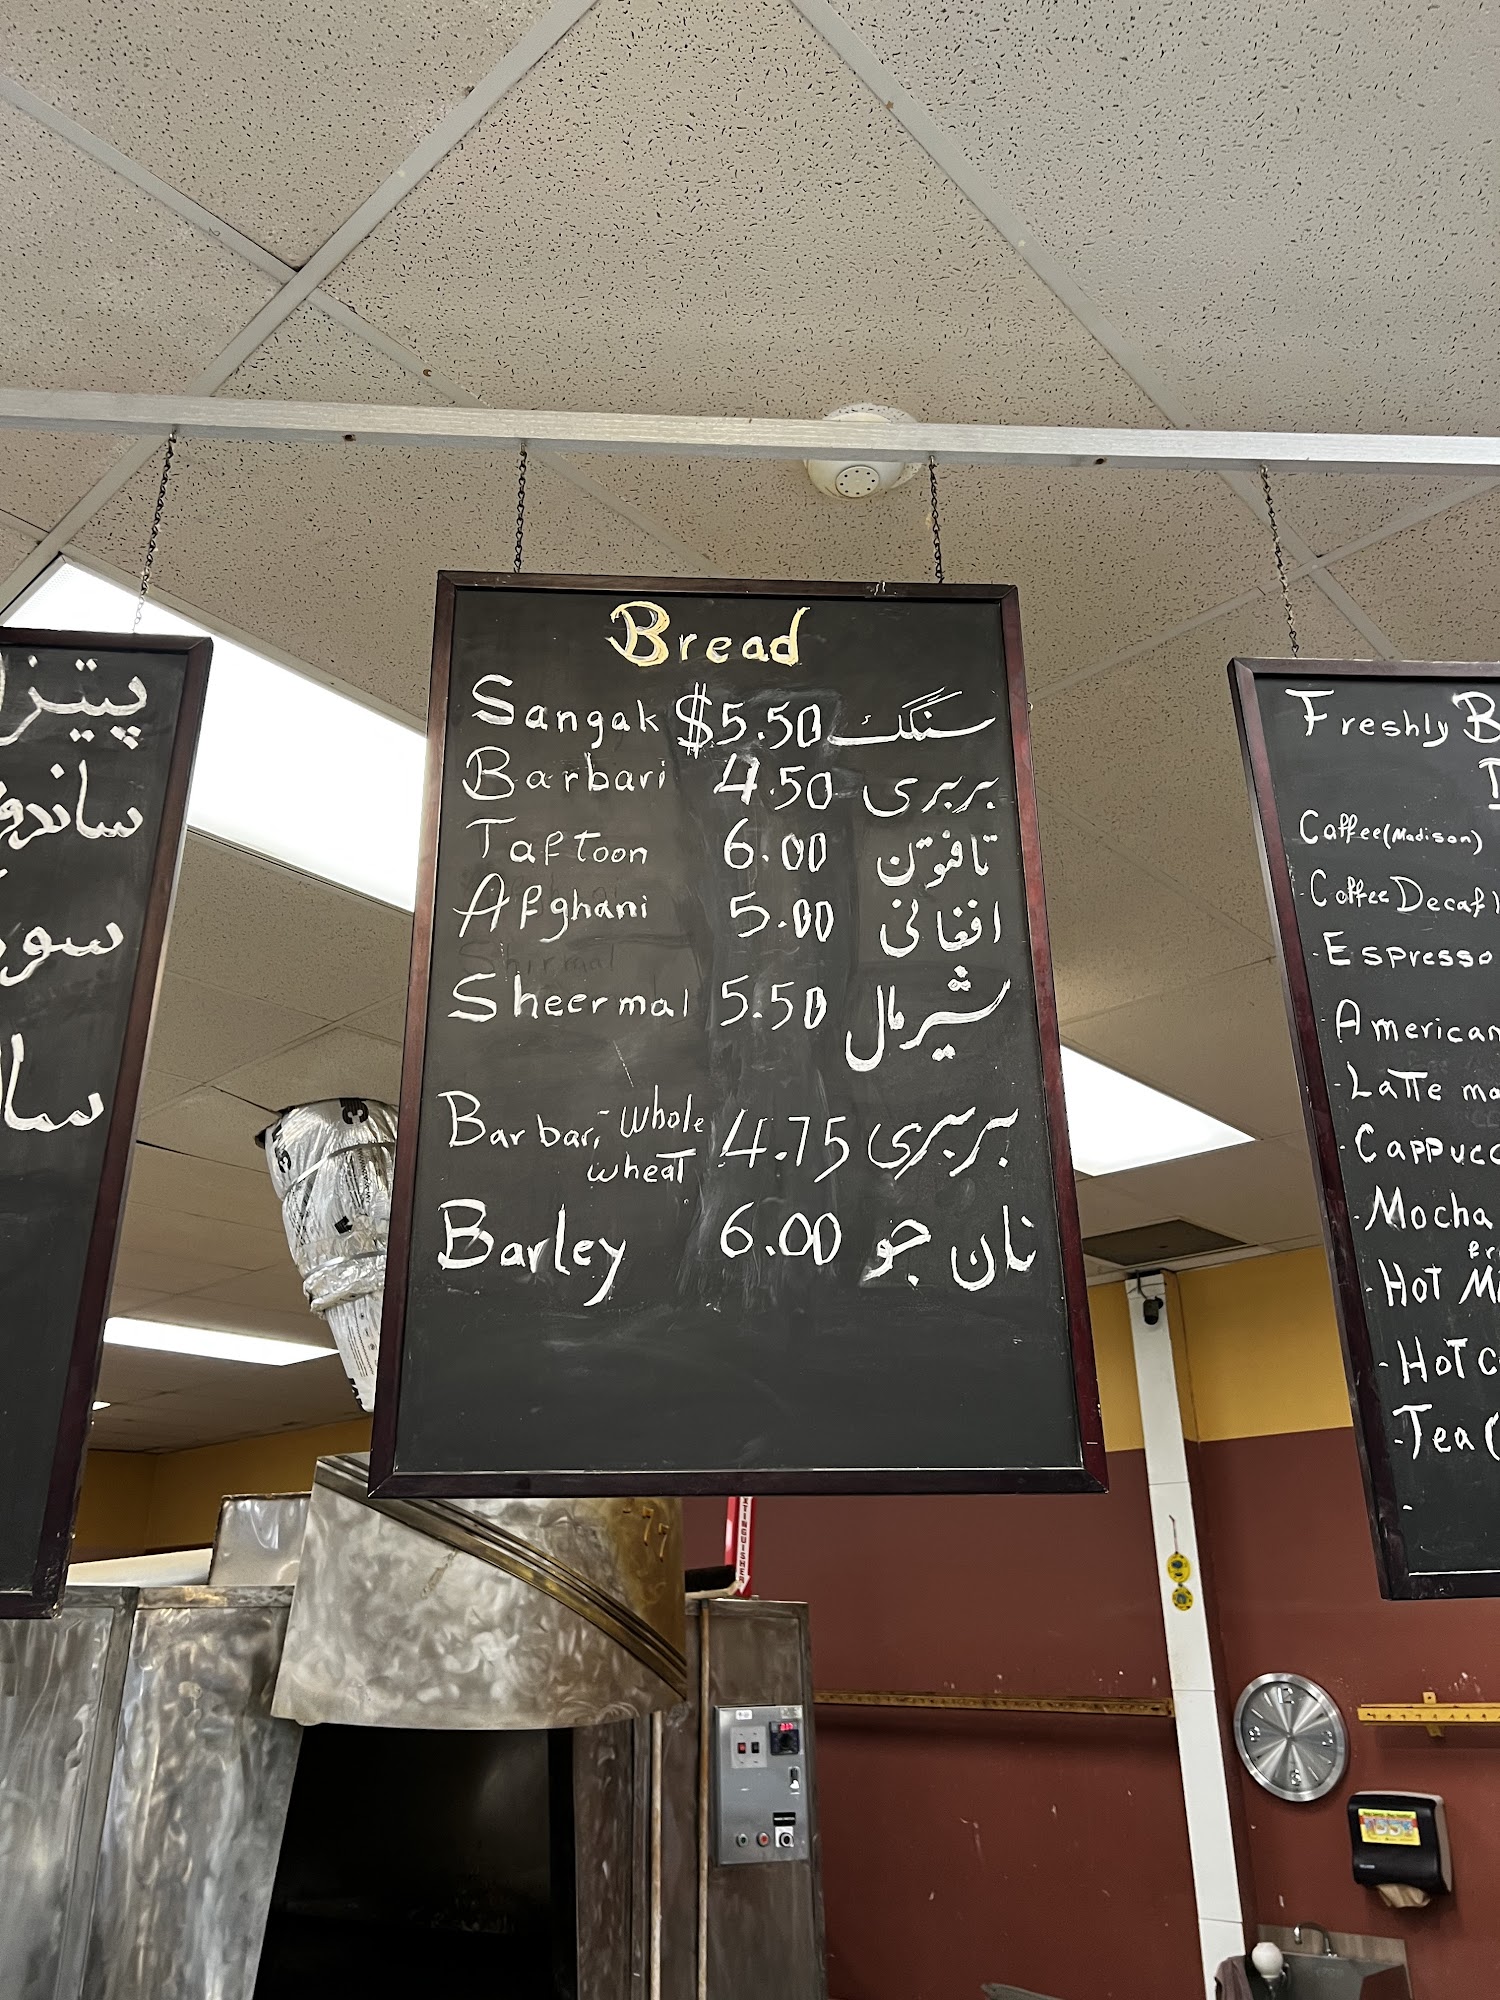 Bread
Sangak $5.50 سنگک
Barbari 4.50 بربری
Taftoon 6.00 تافتون
Afghani 5.00 افغانی
Shirmal
Sheermal 5.50 شیرمال
Barbari - whole 4.75 بربری
wheat
Barley 6.00 نان جو
سا
Freshly B
Coffee (Madison)
Coffee Decaf
Espresso
American
Latte
Cappucc
Mocha
Hot
Hot C
Tea (
XTINGUISHER